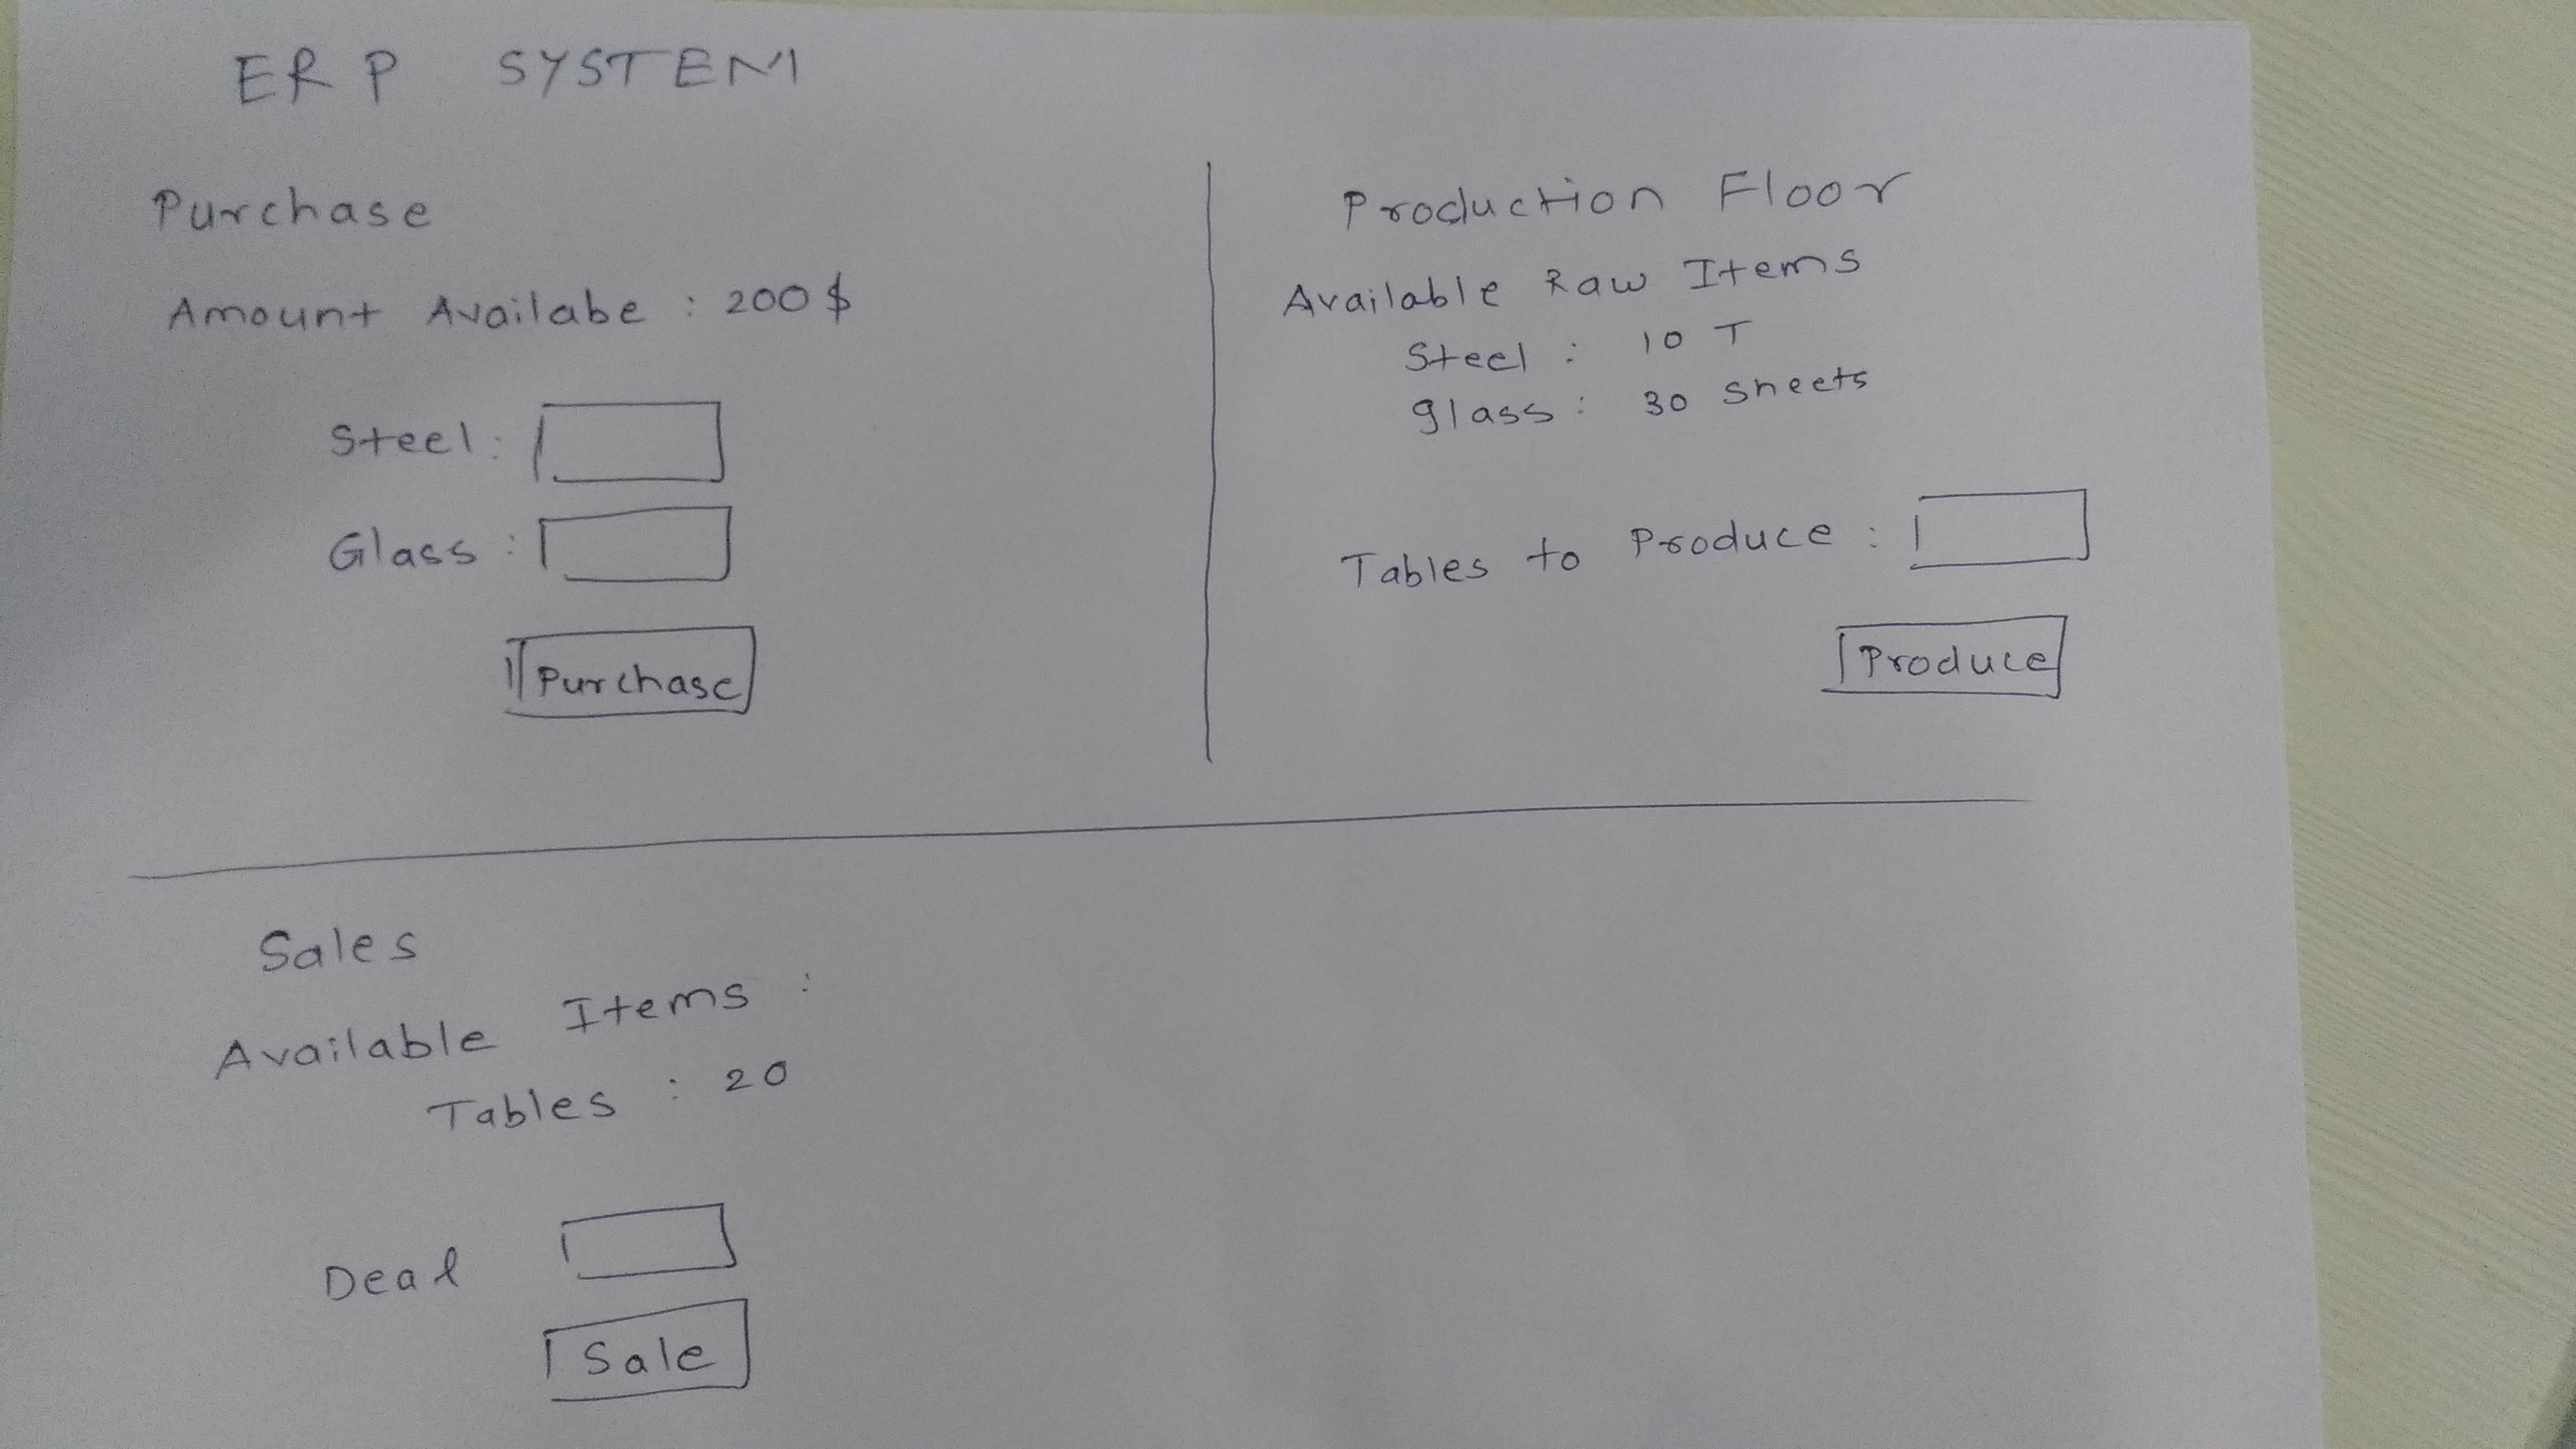 ERP SYSTEM
Purchase
Amount Availabe : 200 $
Steel :
Glass :
Purchase
Production Floor
Available Raw Items
Steel : 10 T
glass : 30 sheets
Tables to Produce :
Produce
Sales
Available Items :
Tables : 20
Deal
Sale